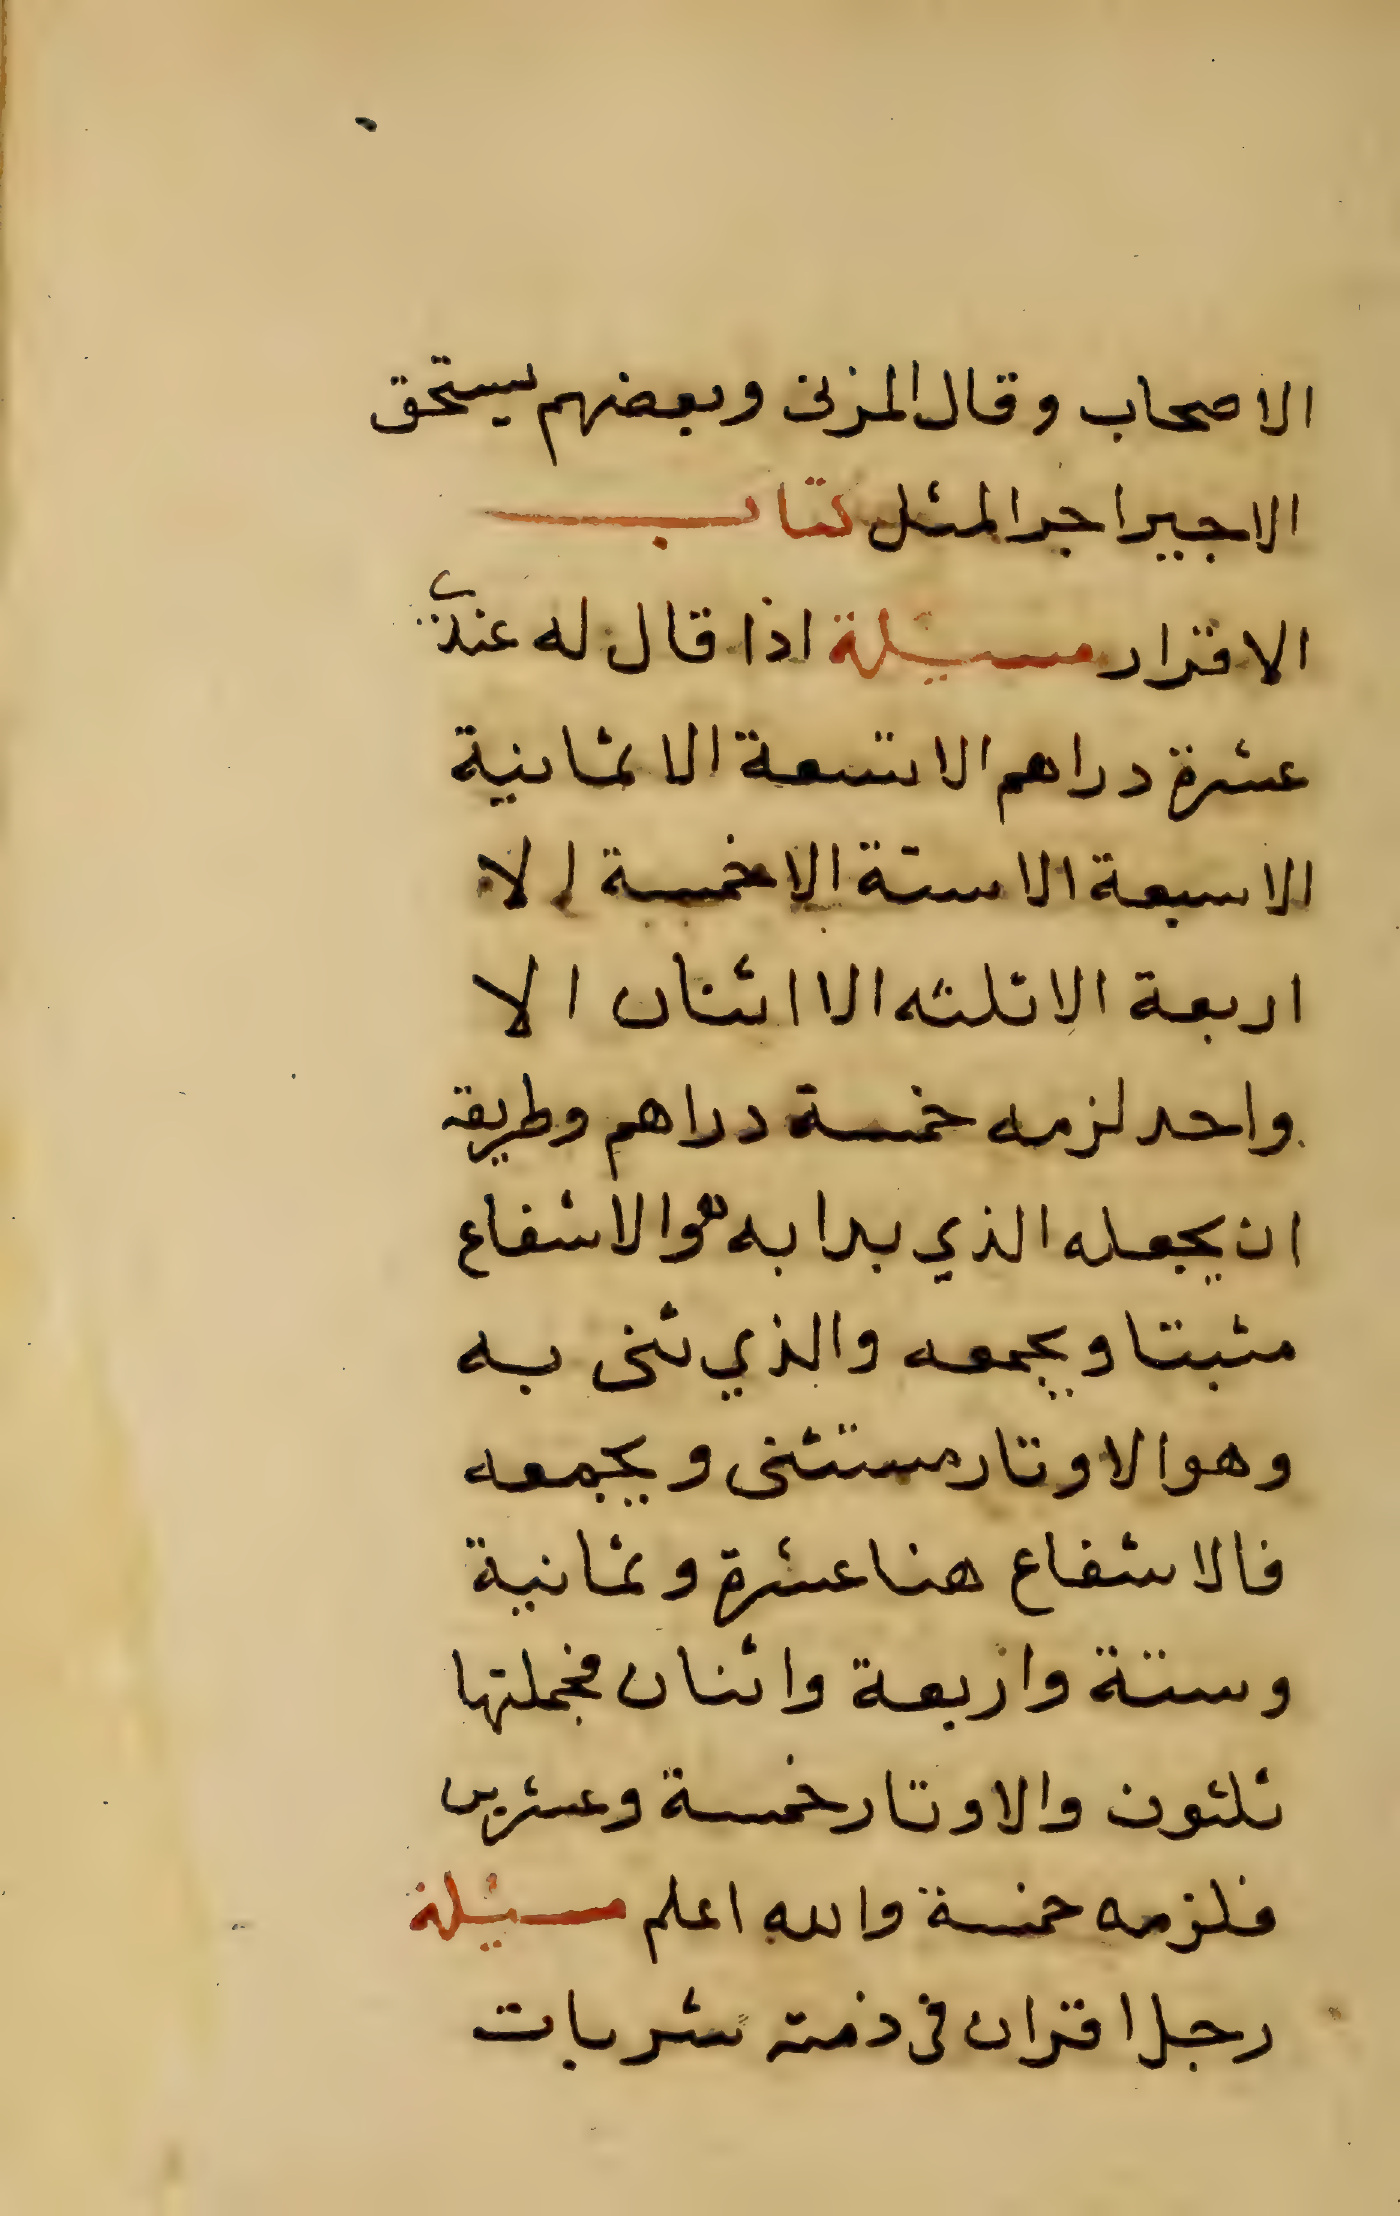 الاصحاب وقال المزنى وبعضهم يستحق
الاجير اجر المثل كتاب
الاقرار مسيلة اذا قال له عندي
عشرة دراهم الا تسعة الا ثمانية
الا سبعة الا ستة الا خمسة الا
اربعة الا ثلثه الا اثنان الا
واحد لزمه خمسة دراهم وطريقه
ان يجعله الذي بدا به هو الاشفاع
مثبتا ويجمعه والذي ثنى به
وهو الاوتار مستثنى ويجمعه
فالاشفاع هنا عشرة وثمانية
وستة واربعة واثنان فجملتها
ثلثون والاوتار خمسة وعشرين
فلزمه خمسة والله اعلم مسيلة
رجل اقر ان فى ذمته شربات